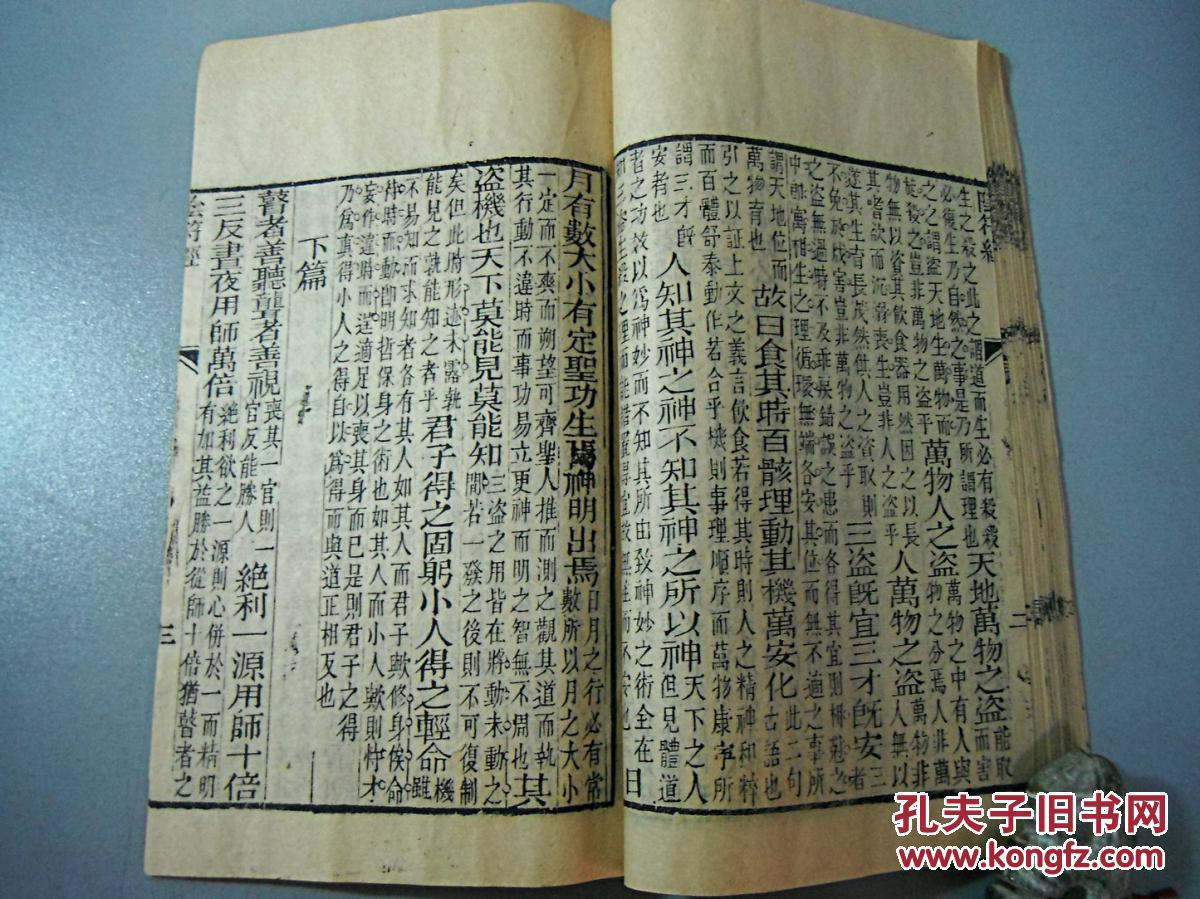 生之殺之此之謂道而生必有殺殺
必復生乃自然之事是乃所謂理也
天地萬物之盜
能取
而害
之之謂盜天地生萬物而
殺之豈非萬物之盜乎
萬物人之盜
萬物之中有人與
物之分焉人非萬
物無以資其飲食器用然因之以長
其嗜欲而沉溺喪生豈非人之盜乎
人萬物之盜
萬物非
人無以
遂其生育長茂然供人之資取則
不免於戕害豈非萬物之盜乎
三盜旣宜三才旣安
三
者
之盜無過時不及乖戾錯誤之患而各得其宜則
中生之理循環無端各安其位而無不適之事所
謂天地位而
萬物育也
故曰食其時百骸理動其機萬安化
此二句
古語也
引之以証上文之義言飲食若得其時則人之精神和粹
而百體舒泰動作若合乎機則事理順序而萬物康所
謂三才旣
安者也
人知其神之神不知其神之所以神
天下之人
但見體道
者之功效以爲神妙而不知其所由致神妙之術全在
三盜生殺之理而能措置得宜故無往而不安也
日
二
月有數大小有定聖功生焉神明出焉
日月之行必有常
數所以月之大小
一定而不爽而朔望可齊聖人推而測之觀其道而執
其行動不違時而事功易立更神而明之智無不周也
其
盜機也天下莫能見莫能知
三盜之用皆在將動未動之
間若一發之後則不可復制
矣但此時形迹未露孰
能見之孰能知之者乎
君子得之固躬小人得之輕命
機
雖
不易知而求知者各有其人如其人而君子歟修身俟命
待時而動卽明哲保身之術也如其人而小人歟則恃才
妄作違時而逞適足以喪其身而已是則君子之得
乃爲真得小人之得自以爲得而與道正相反也
下篇
瞽者善聽聾者善視
喪其一官則一
官反能勝人
絕利一源用師十倍
三反晝夜用師萬倍
絕利欲之一源則心併於一而精明
有加其益勝於從師十倍猶瞽者之
陰符經
三
孔夫子旧书网
www.kongfz.com